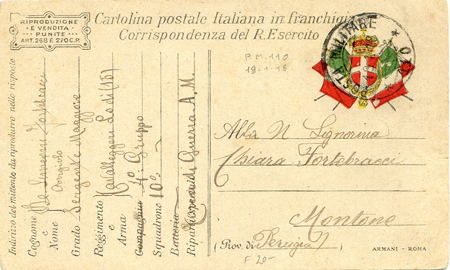 RIPRODUZIONE
E VENDITA
PUNITE
ART. 268 E 270 C.P.
Cartolina postale Italiana in franchigia
Corrispondenza del R. Esercito
POSTA MILITARE
P.M. 110
19-1-18
Alla N. Signorina
Chiara Fortebracci
Montone
(Prov. di Perugia)
ARMANI - ROMA
F 20-
Indirizzo del mittente da riprodurre nelle risposte
Cognome
e
Nome Angelo
Grado Sergente Maggiore
Reggimento Cavalleggeri Lodi (15)
o
Arma
Compagnia 4º Gruppo
Squadrone 10º
Batteria
Riparto Guerra A. M.